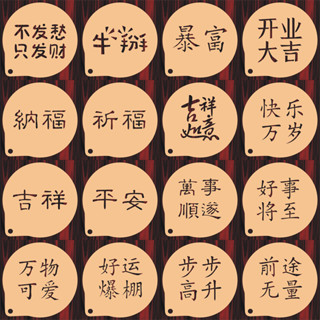 不发愁
只发财
牛掰
暴富
开业
大吉
納福
祈福
吉祥
如意
快乐
万岁
吉祥
平安
萬事
順遂
好事
将至
万物
可爱
好运
爆棚
步步
高升
前途
无量